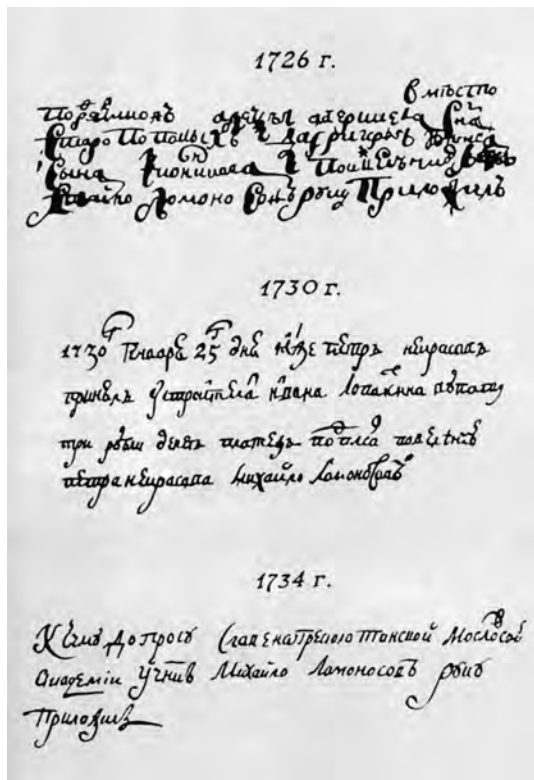 1726 г.
вмѣсто
подрядчиковъ алеѯѣа аверкиева сна
Старопоповыхъ і да григорья іванова
сына іконникова і по ихъ велѣнию
Михайло Ломоносовъ руку приложилъ
1730 г.
1730 Генваря 25 дня петръ некрасовъ
принелъ у строителя ивана
три рубли денегъ подписа повелѣниемъ
петра некрасова михайло Ломоносовъ
1734 г.
К сему допросу Славенагреколатинской Московской
Академіи ученикъ Михайло Ломоносовъ руку
приложилъ